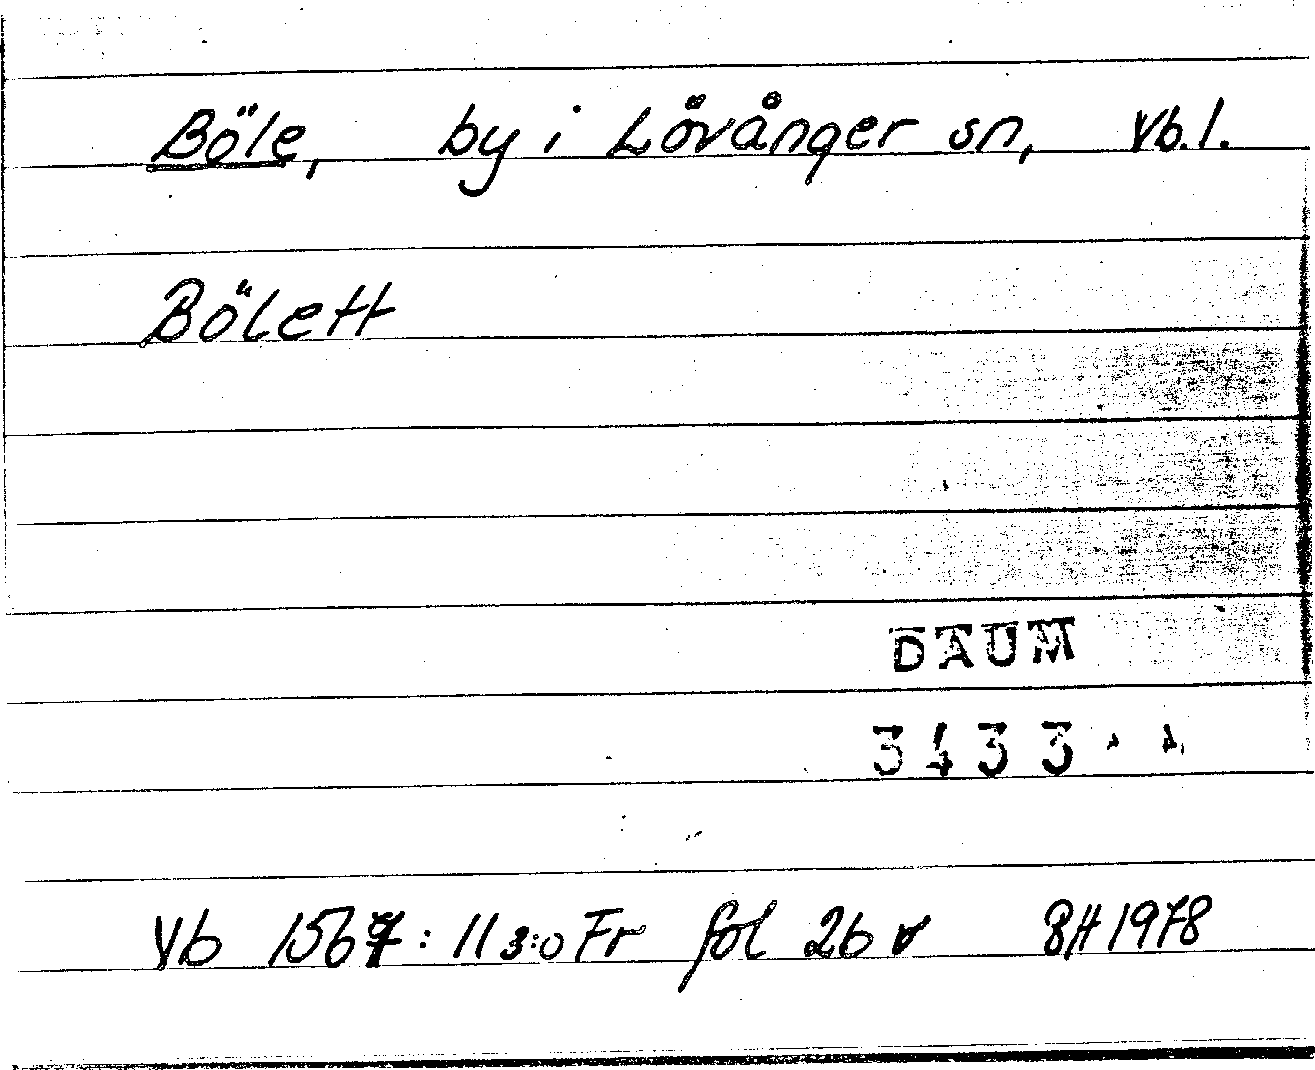 Böle, by i Lövånger sn, Vb.l.
Bölett
DAUM
3433
Vb 1567: 11 3:0 Fr fol 26 v BH 1978